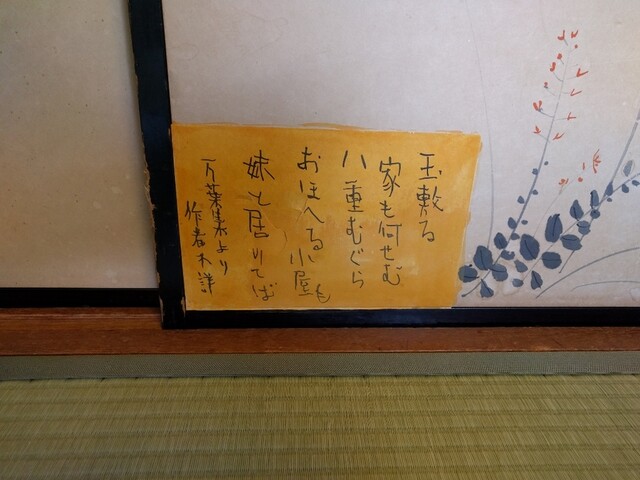 玉敷る
家も何せむ
八重むぐら
おほへる小屋も
妹と居りてば
万葉集より
作者不詳